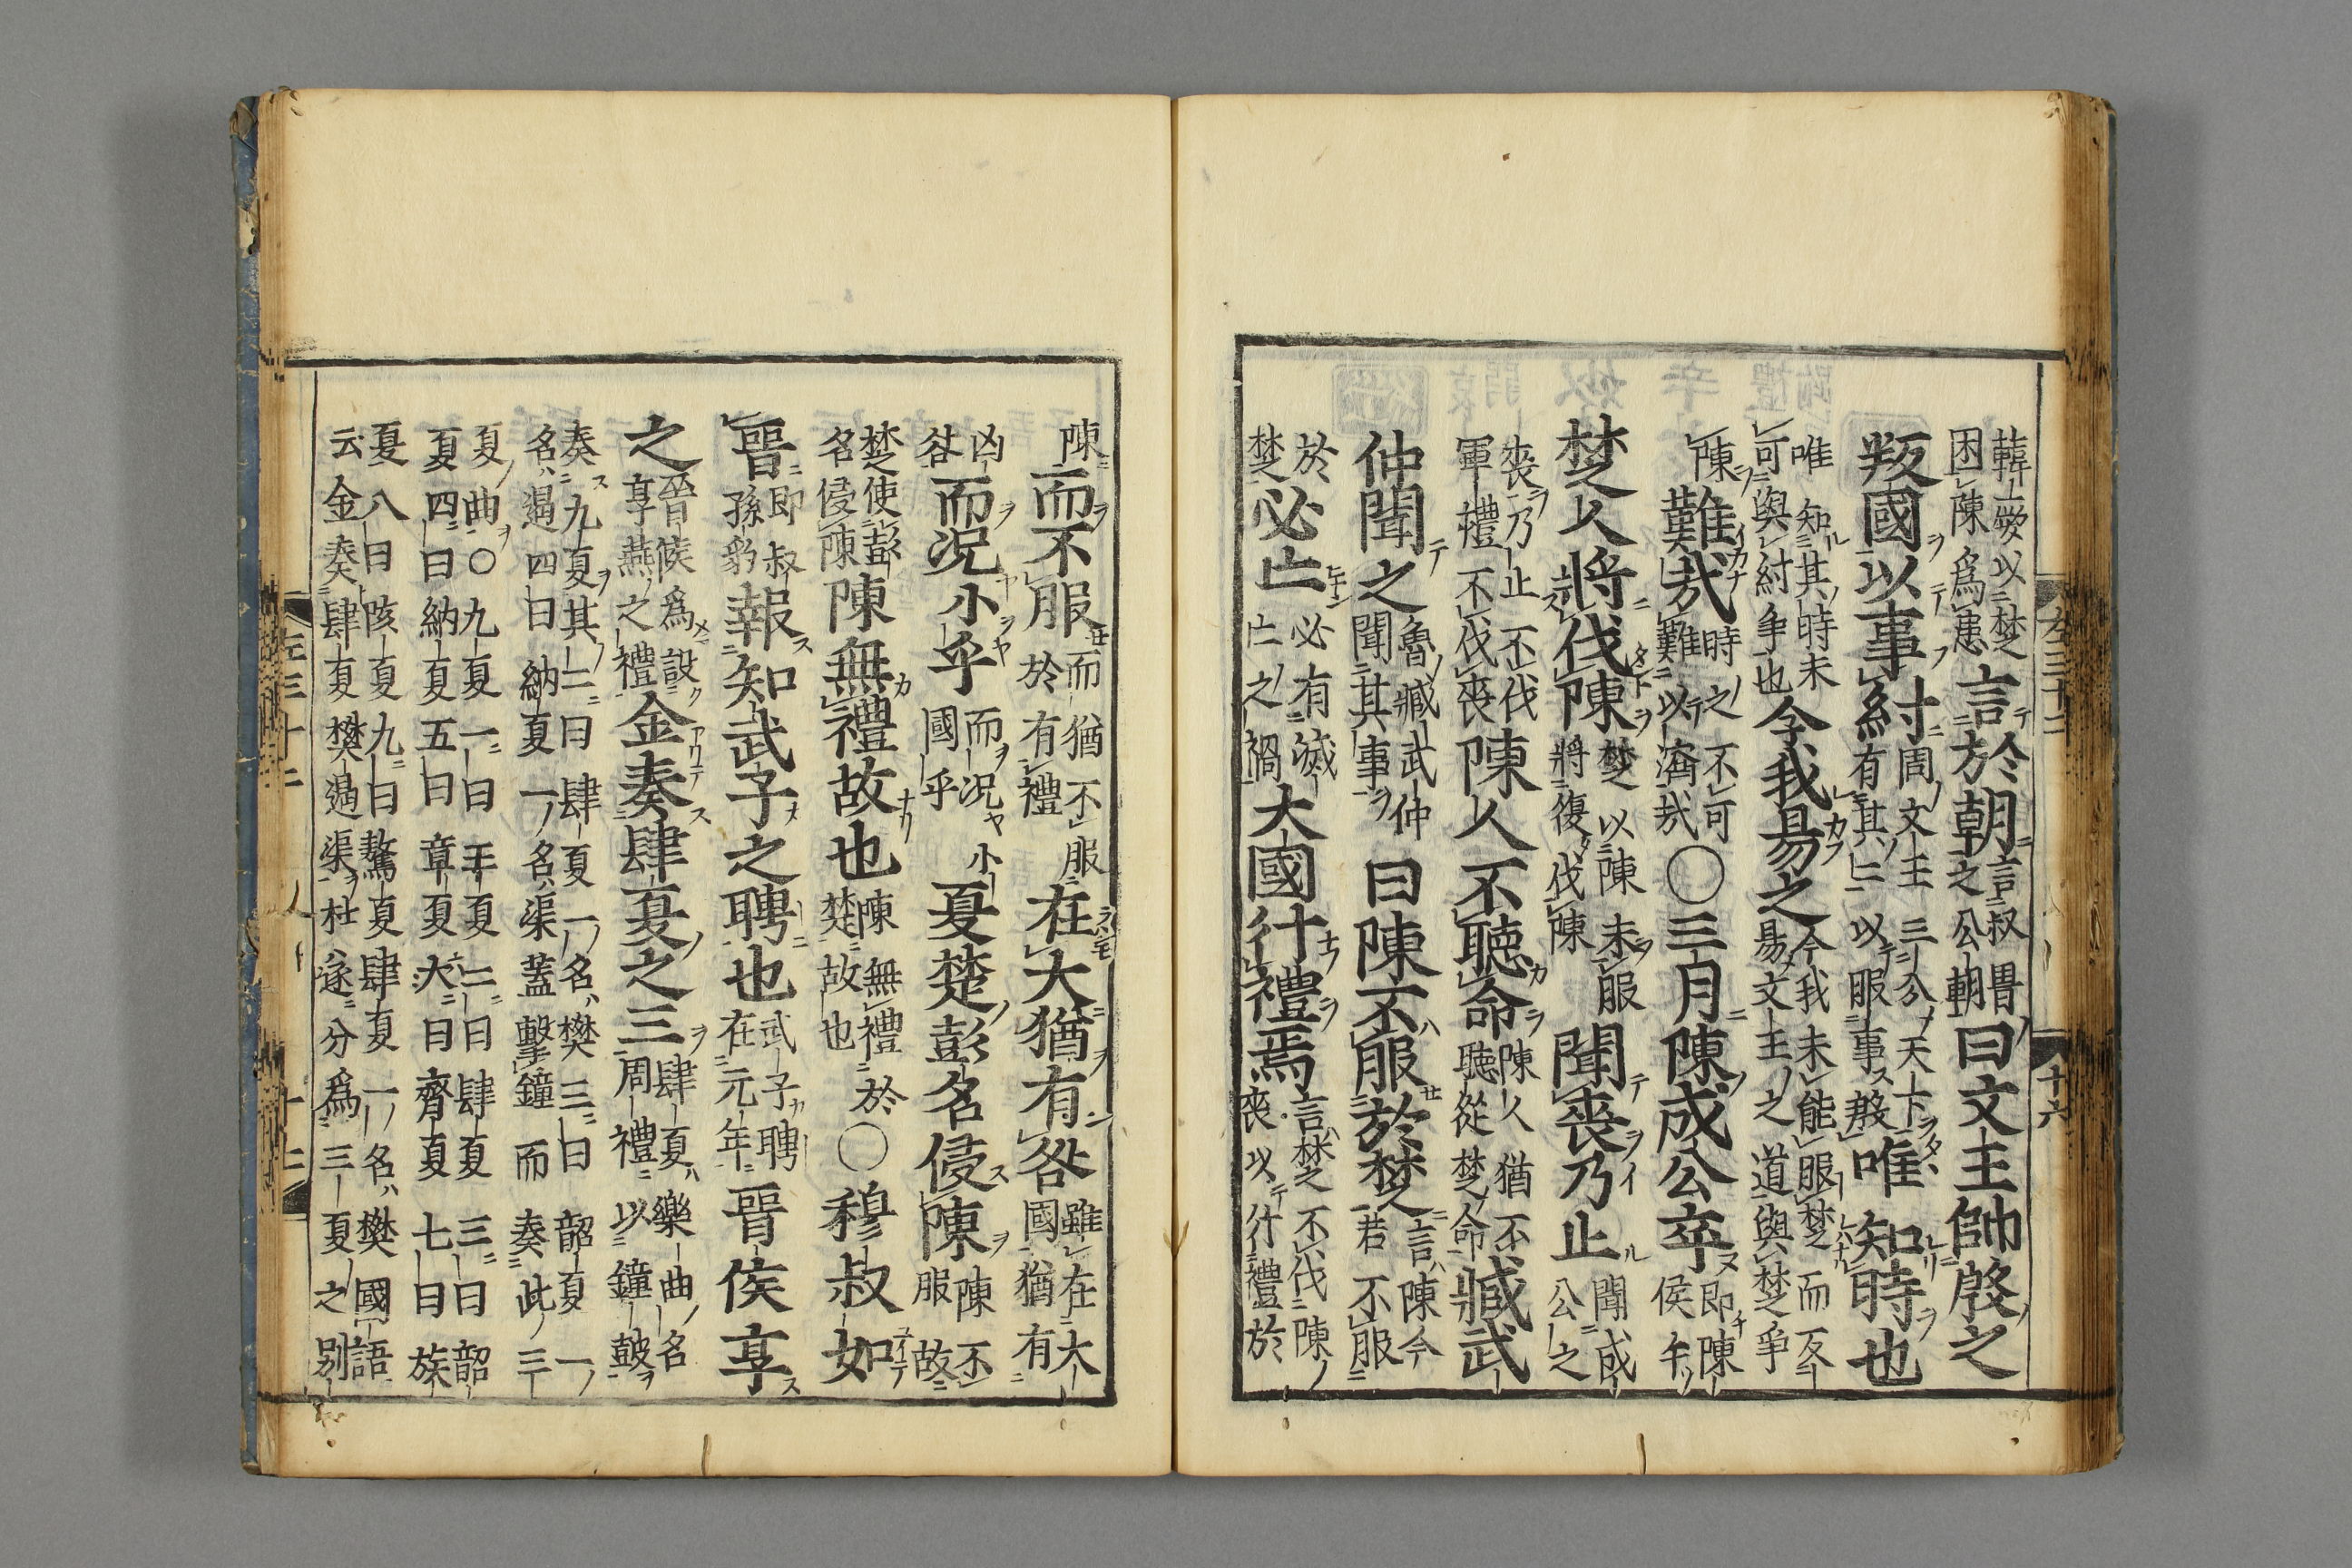 韓厥以楚困陳爲患言於朝言叔之公朝曰文王帥殷之
叛國以事紂周文王三公天下有其二以服事殷唯知時也
唯知其時未可與紂爭也今我易之今我未能服楚而反易文王之道與楚爭
陳難哉時之不可難以濟哉○三月陳成公卒即陳侯午
楚人將伐陳楚以陳未服將復伐陳聞喪乃止聞成公之
喪乃止不伐軍禮不伐喪陳人不聽命陳人猶不聽從楚命臧武
仲聞之魯臧武仲聞其事曰陳不服於楚言陳今若不服
於楚必亡必有滅亡之禍大國行禮焉言楚不伐陳喪以行禮於
左三十二 十六
陳而不服而猶不服於有禮在大猶有咎雖在大國猶有
凶咎而況小乎而況小國乎夏楚彭名侵陳陳不服故
楚使彭名侵陳陳無禮故也陳無禮於楚故也○穆叔如
晉即叔孫豹報知武子之聘也武子聘在元年晉侯享
之晉侯爲設享燕之禮金奏肆夏之三肆夏樂曲名周禮以鐘鼓
奏九夏其二曰肆夏一名樊三曰韶夏一名遏四曰納夏一名渠蓋擊鐘而奏此三
夏曲○九夏一曰王夏二曰肆夏三曰韶夏四曰納夏五曰章夏六曰齊夏七曰族
夏八曰陔夏九曰驁夏肆夏一名樊國語云金奏肆夏樊遏渠杜遂分爲三夏之別
左三十二 十七